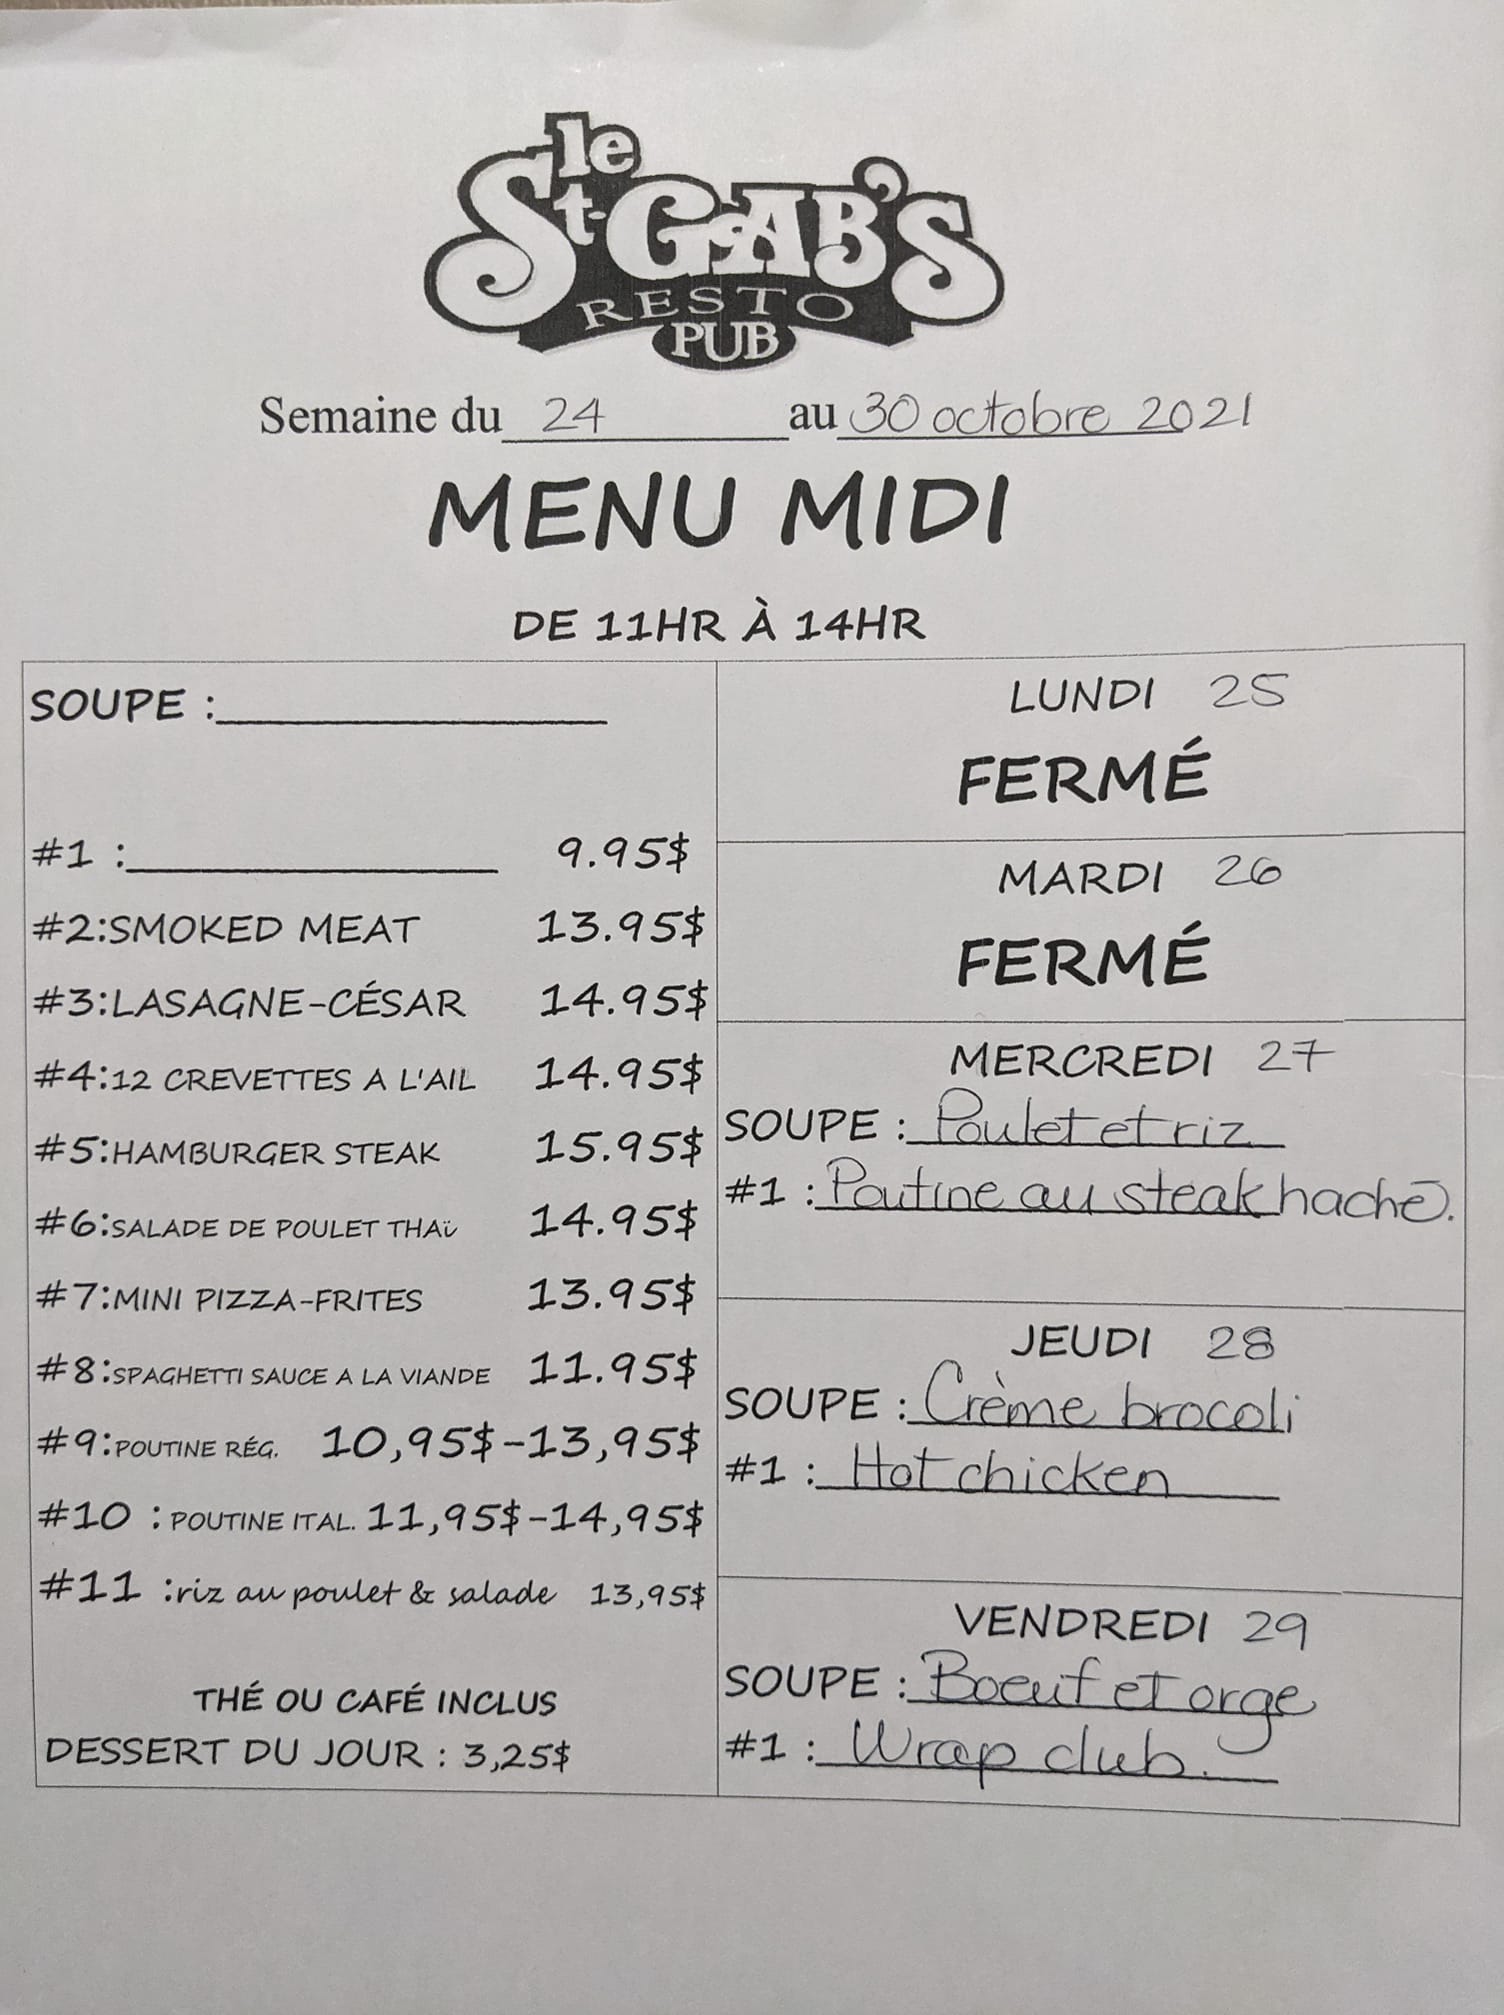 le
St-GAB'S
RESTO
PUB
Semaine du 24 au 30 octobre 2021
MENU MIDI
DE 11HR À 14HR
SOUPE :
#1 : 9.95$
#2:SMOKED MEAT 13.95$
#3:LASAGNE-CÉSAR 14.95$
#4:12 CREVETTES A L'AIL 14.95$
#5:HAMBURGER STEAK 15.95$
#6:SALADE DE POULET THAï 14.95$
#7:MINI PIZZA-FRITES 13.95$
#8:SPAGHETTI SAUCE A LA VIANDE 11.95$
#9:POUTINE RÉG. 10,95$-13,95$
#10 : POUTINE ITAL. 11,95$-14,95$
#11 :riz au poulet & salade 13,95$
THÉ OU CAFÉ INCLUS
DESSERT DU JOUR : 3,25$
LUNDI 25
FERMÉ
MARDI 26
FERMÉ
MERCREDI 27
SOUPE : Poulet et riz
#1 : Poutine au steak haché.
JEUDI 28
SOUPE : Crème brocoli
#1 : Hot chicken
VENDREDI 29
SOUPE : Boeuf et orge
#1 : Wrap club.